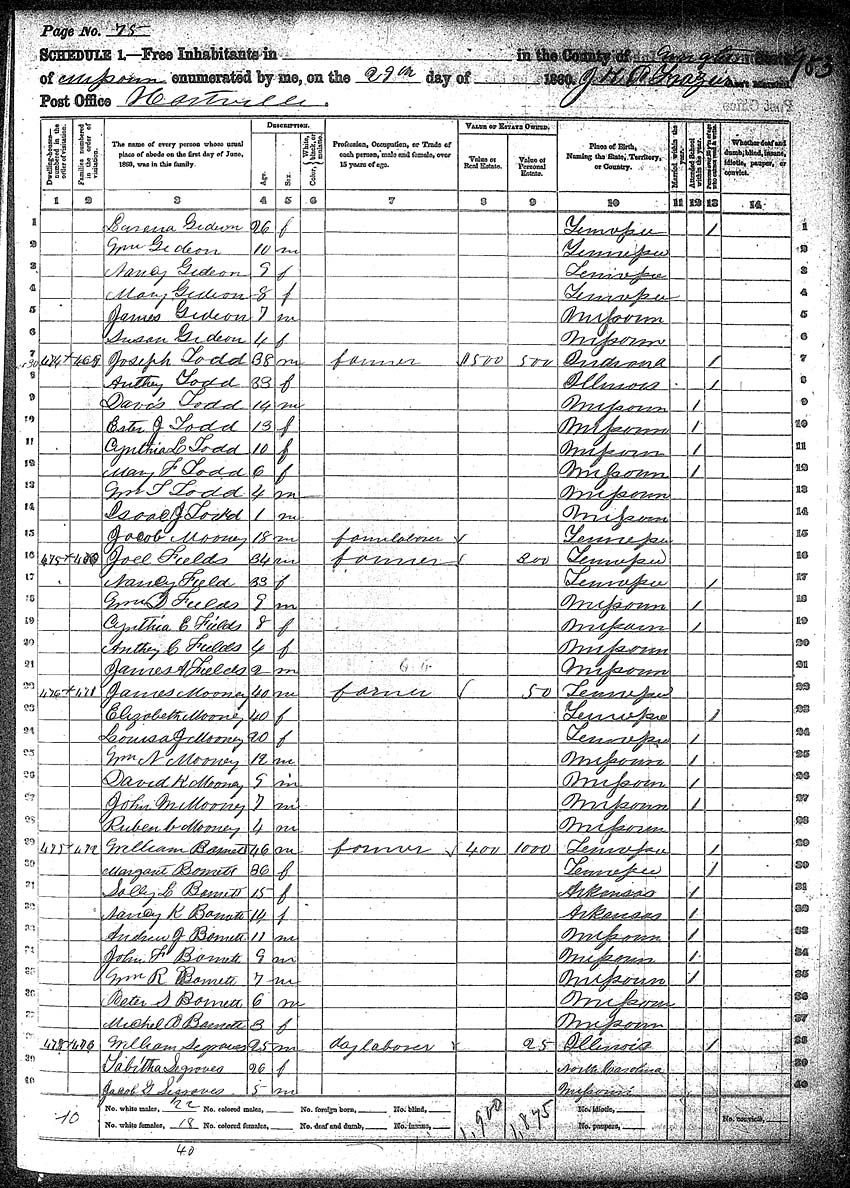 Page No. 75
SCHEDULE 1.—Free Inhabitants in in the County of State 903
of Missouri enumerated by me, on the 29th day of 1860.
Post Office Hartville.
DESCRIPTION. VALUE OF ESTATE OWNED.
Dwelling-houses numbered in the order of visitation. Families numbered in the order of visitation. The name of every person whose usual place of abode on the first day of June, 1860, was in this family. Age. Sex. Color, White, black, or mulatto. Profession, Occupation, or Trade of each person, male and female, over 15 years of age. Value of Real Estate. Value of Personal Estate. Place of Birth, Naming the State, Territory, or Country. Married within the year. Attended School within the year. Whether deaf and dumb, blind, insane, idiotic, pauper, or convict.
1 2 3 4 5 6 7 8 9 10 11 12 13 14
1 Gideon 26 f Tennessee 1 1
2 Wm Gideon 10 m Tennessee 2
3 Nancy Gideon 9 f Tennessee 3
4 Mary Gideon 8 f Tennessee 4
5 James Gideon 7 m Missouri 5
6 Susan Gideon 4 f Missouri 6
7 474 Joseph Todd 38 m farmer 1500 500 Indiana 1 7
8 Anthey Todd 33 f Illinois 1 8
9 Davis Todd 14 m Missouri 1 9
10 Ester J Todd 13 f Missouri 1 10
11 Cynthia E Todd 10 f Missouri 1 11
12 Mary F Todd 6 f Missouri 1 12
13 Wm T Todd 4 m Missouri 13
14 Isaac J Todd 1 m Missouri 14
15 Jacob Mooney 18 m farmlaborer Tennessee 15
16 475 Joel Fields 34 m farmer 300 Tennessee 16
17 Nancy Field 33 f Tennessee 1 17
18 Wm D Fields 9 m Missouri 1 18
19 Cynthia E Fields 8 f Missouri 1 19
20 Anthey C Fields 4 f Missouri 20
21 James A Fields 2 m Missouri 21
22 476 471 James Mooney 40 m farmer 50 Tennessee 22
23 Elizabeth Mooney 40 f Tennessee 1 23
24 Louisa J Mooney 20 f Tennessee 1 24
25 Wm N Mooney 12 m Missouri 1 25
26 David K Mooney 9 m Missouri 1 26
27 John M Mooney 7 m Missouri 1 27
28 Ruben C Mooney 4 m Missouri 28
29 472 William Barnett 46 m farmer 400 1000 Tennessee 1 29
30 Margaret Barnett 36 f Tennessee 1 30
31 Sally E Barnett 15 f Arkansas 1 31
32 Nancy K Barnett 14 f Arkansas 1 32
33 Andrew J Barnett 11 m Missouri 1 33
34 John F Barnett 9 m Missouri 1 34
35 Wm R Barnett 7 m Missouri 1 35
36 Peter S Barnett 6 m Missouri 36
37 Barnett 3 f Missouri 37
38 478 William Segraves 25 m daylaborer 25 Illinois 1 38
39 Tabitha Segraves 26 f North Carolina 39
40 Jacob G Segraves 5 m Missouri 40
No. white males, 22 No. colored males, No. foreign born, No. blind, 1,900 1,875 No. idiotic,
No. white females, 18 No. colored females, No. deaf and dumb, No. insane, No. paupers, No. convicts,
40